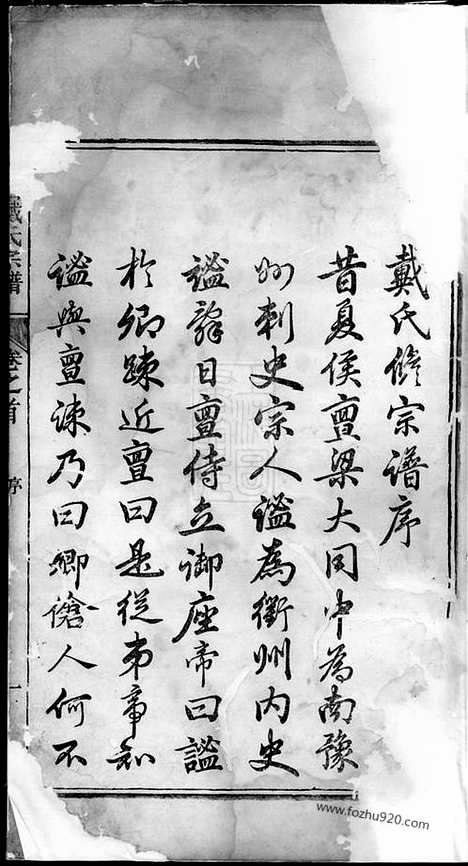 戴氏修宗譜序
昔夏侯亶梁大同中為南豫
州刺史宗人謐為衡州內史
謐辭日亶侍立御座帝曰謐
於卿疎近亶曰是從弟帝知
謐與亶疎乃曰卿傖人何不
戴氏宗譜
卷之首
序
一
www.fozhu920.com